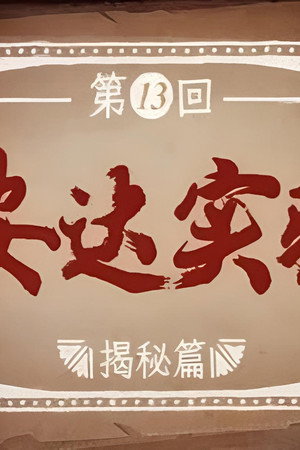 第13回
达实
揭秘篇